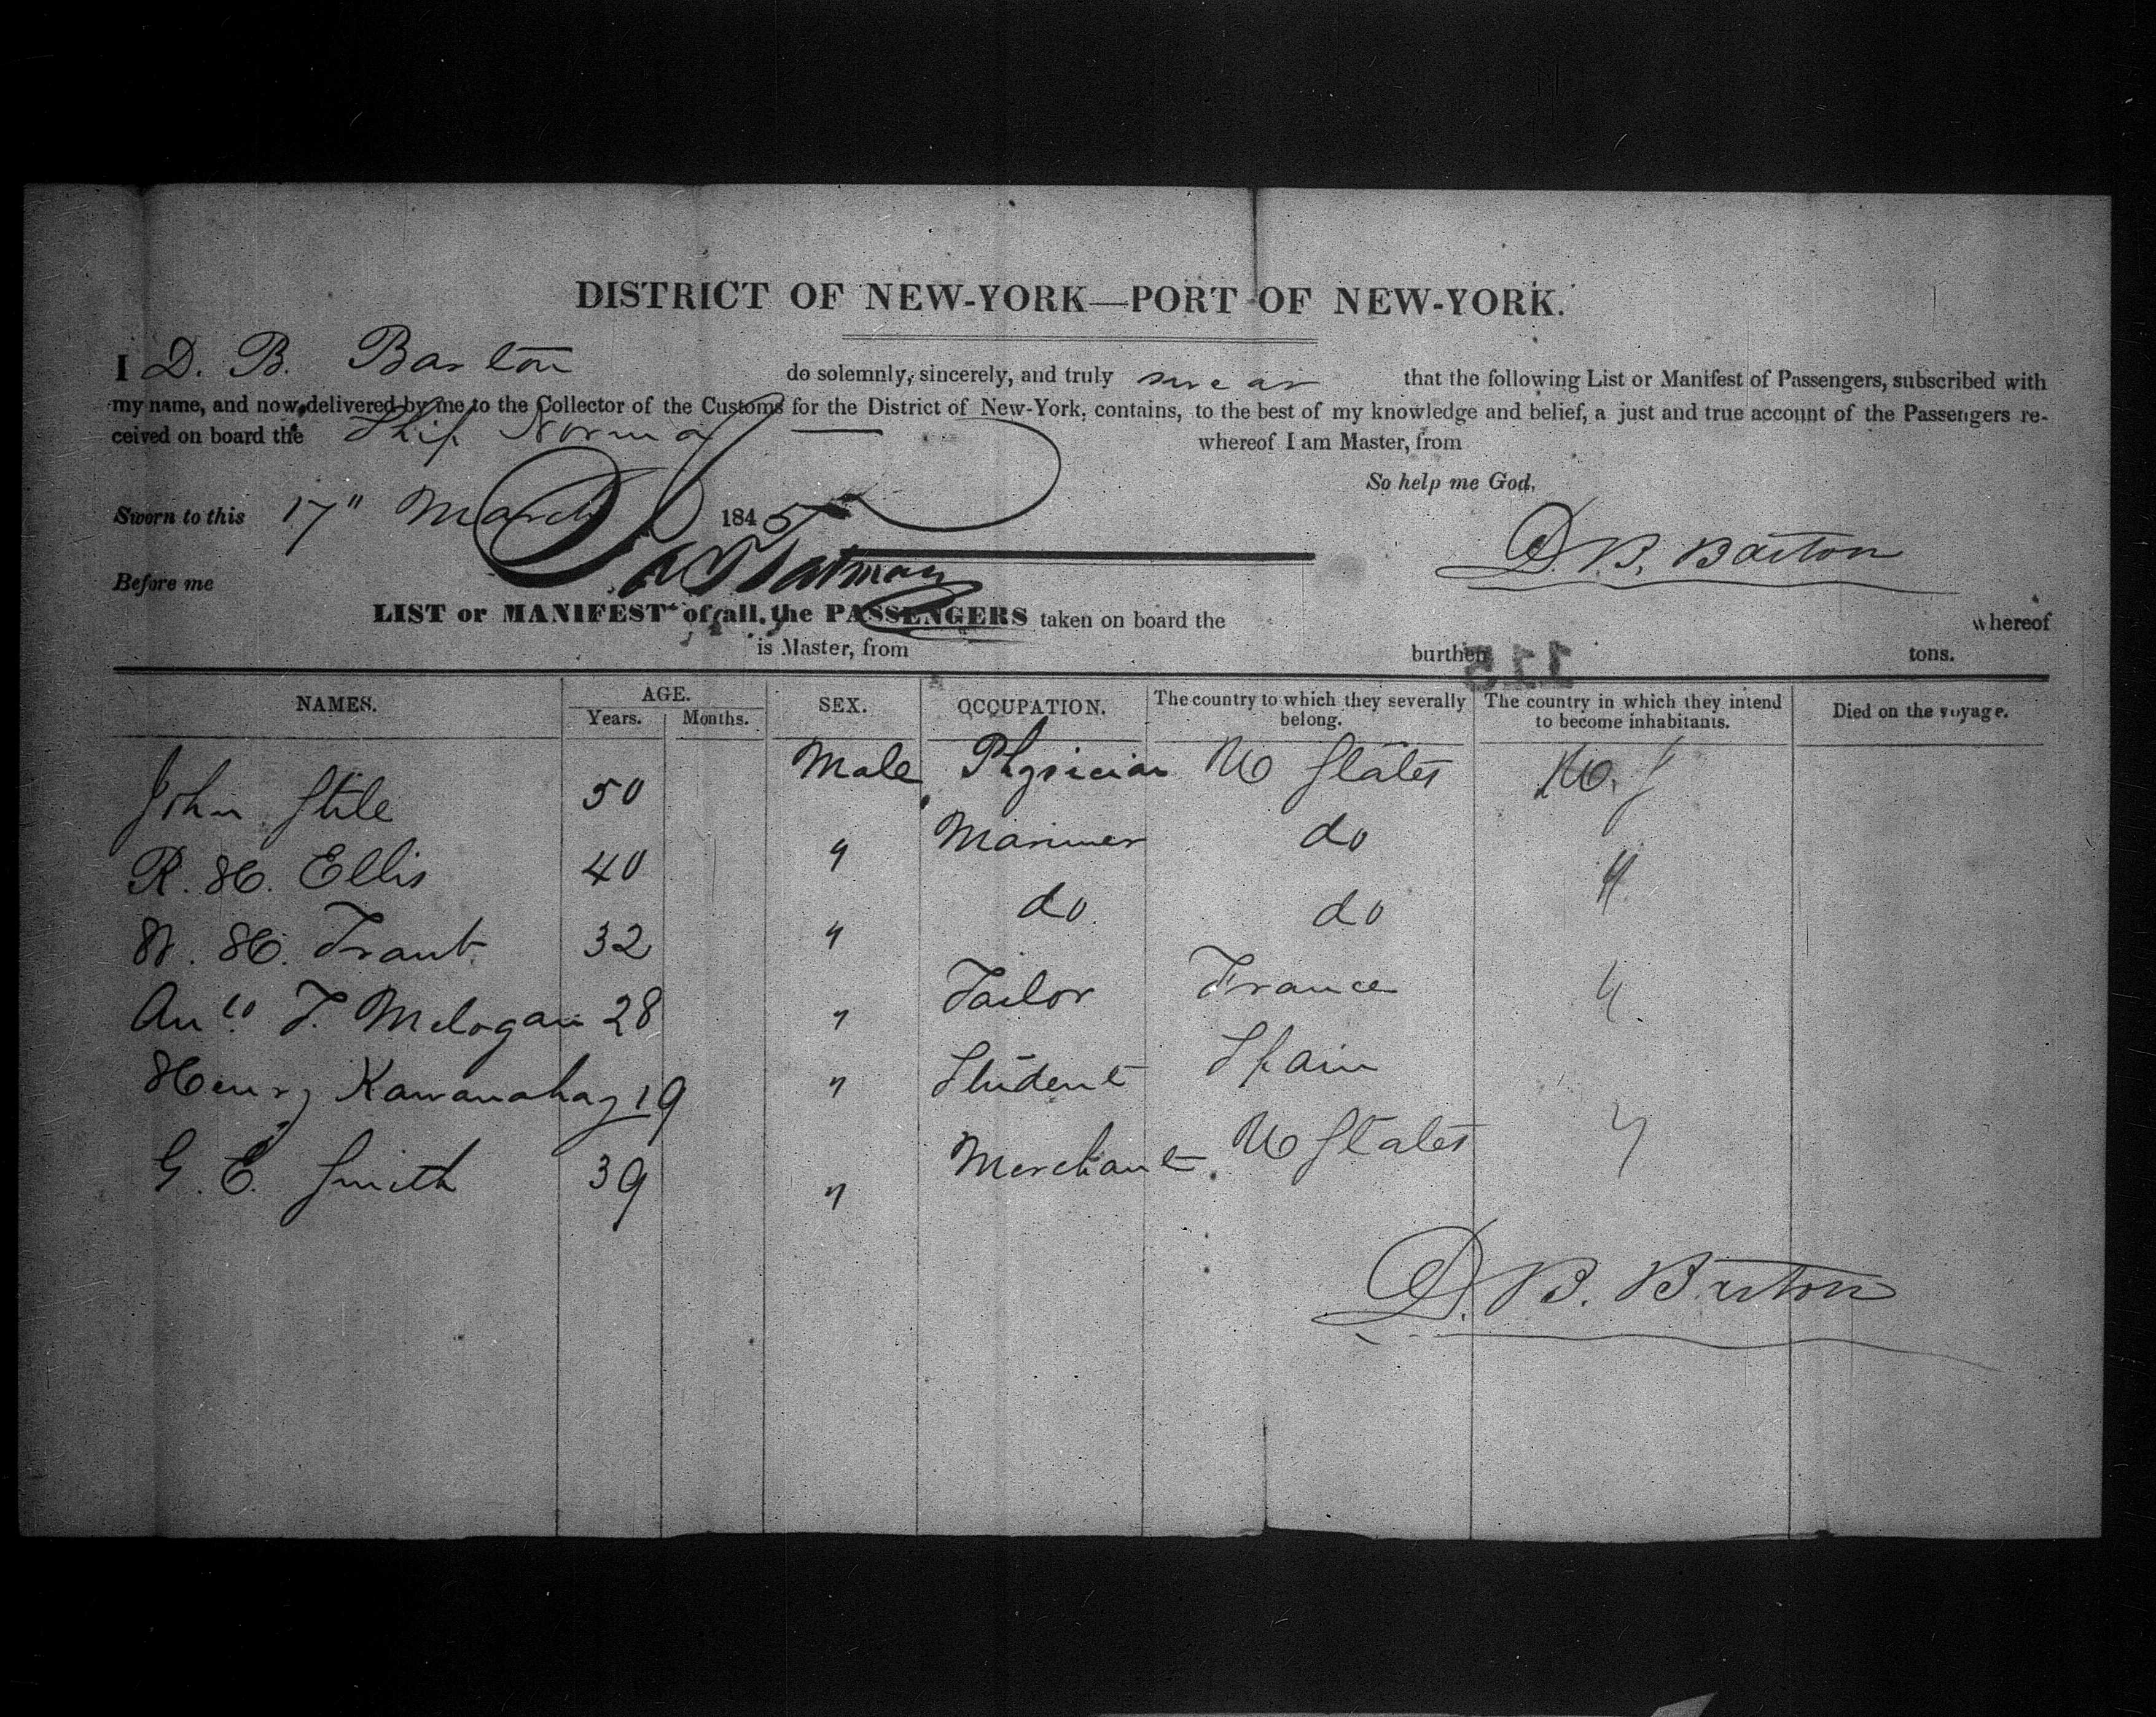 DISTRICT OF NEW-YORK—PORT OF NEW-YORK.
I D. B. Barton do solemnly, sincerely, and truly swear that the following List or Manifest of Passengers, subscribed with
my name, and now delivered by me to the Collector of the Customs for the District of New-York, contains, to the best of my knowledge and belief, a just and true account of the Passengers re-
ceived on board the Ship Norma whereof I am Master, from
So help me God.
Sworn to this 17" March 1845
D. B. Barton
Before me
LIST or MANIFEST of all the PASSENGERS taken on board the whereof
is Master, from burthen tons.
115
NAMES. AGE. SEX. OCCUPATION. The country to which they severally belong. The country in which they intend to become inhabitants. Died on the voyage.
Years. Months.
John Stile 50 Male Physician U States U. S
R. H. Ellis 40 " Mariner do "
W. H. Trant 32 " do do
An co T. Melogan 28 " Tailor France "
Henry Kawanahay 19 " Student Spain
G. E. Smith 39 " Merchant U States "
D. B. Barton